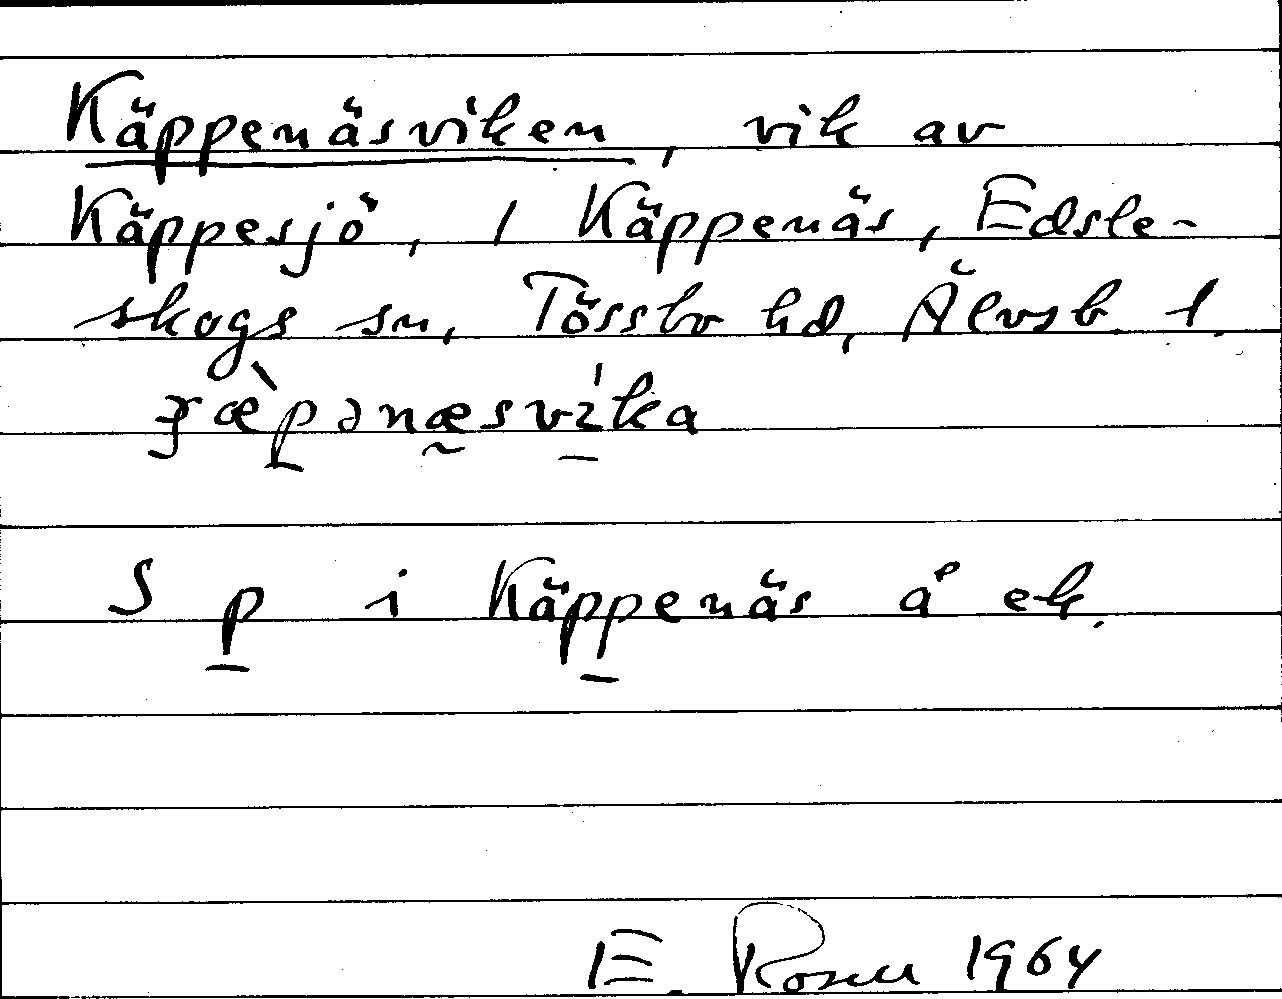 Käppenäsviken, vik av
Käppesjö, / Käppenäs, Edsle-
skogs sn, Tössbo hd, Älvsb. l.
S p i Käppenäs å ek.
E. Rosell 1964